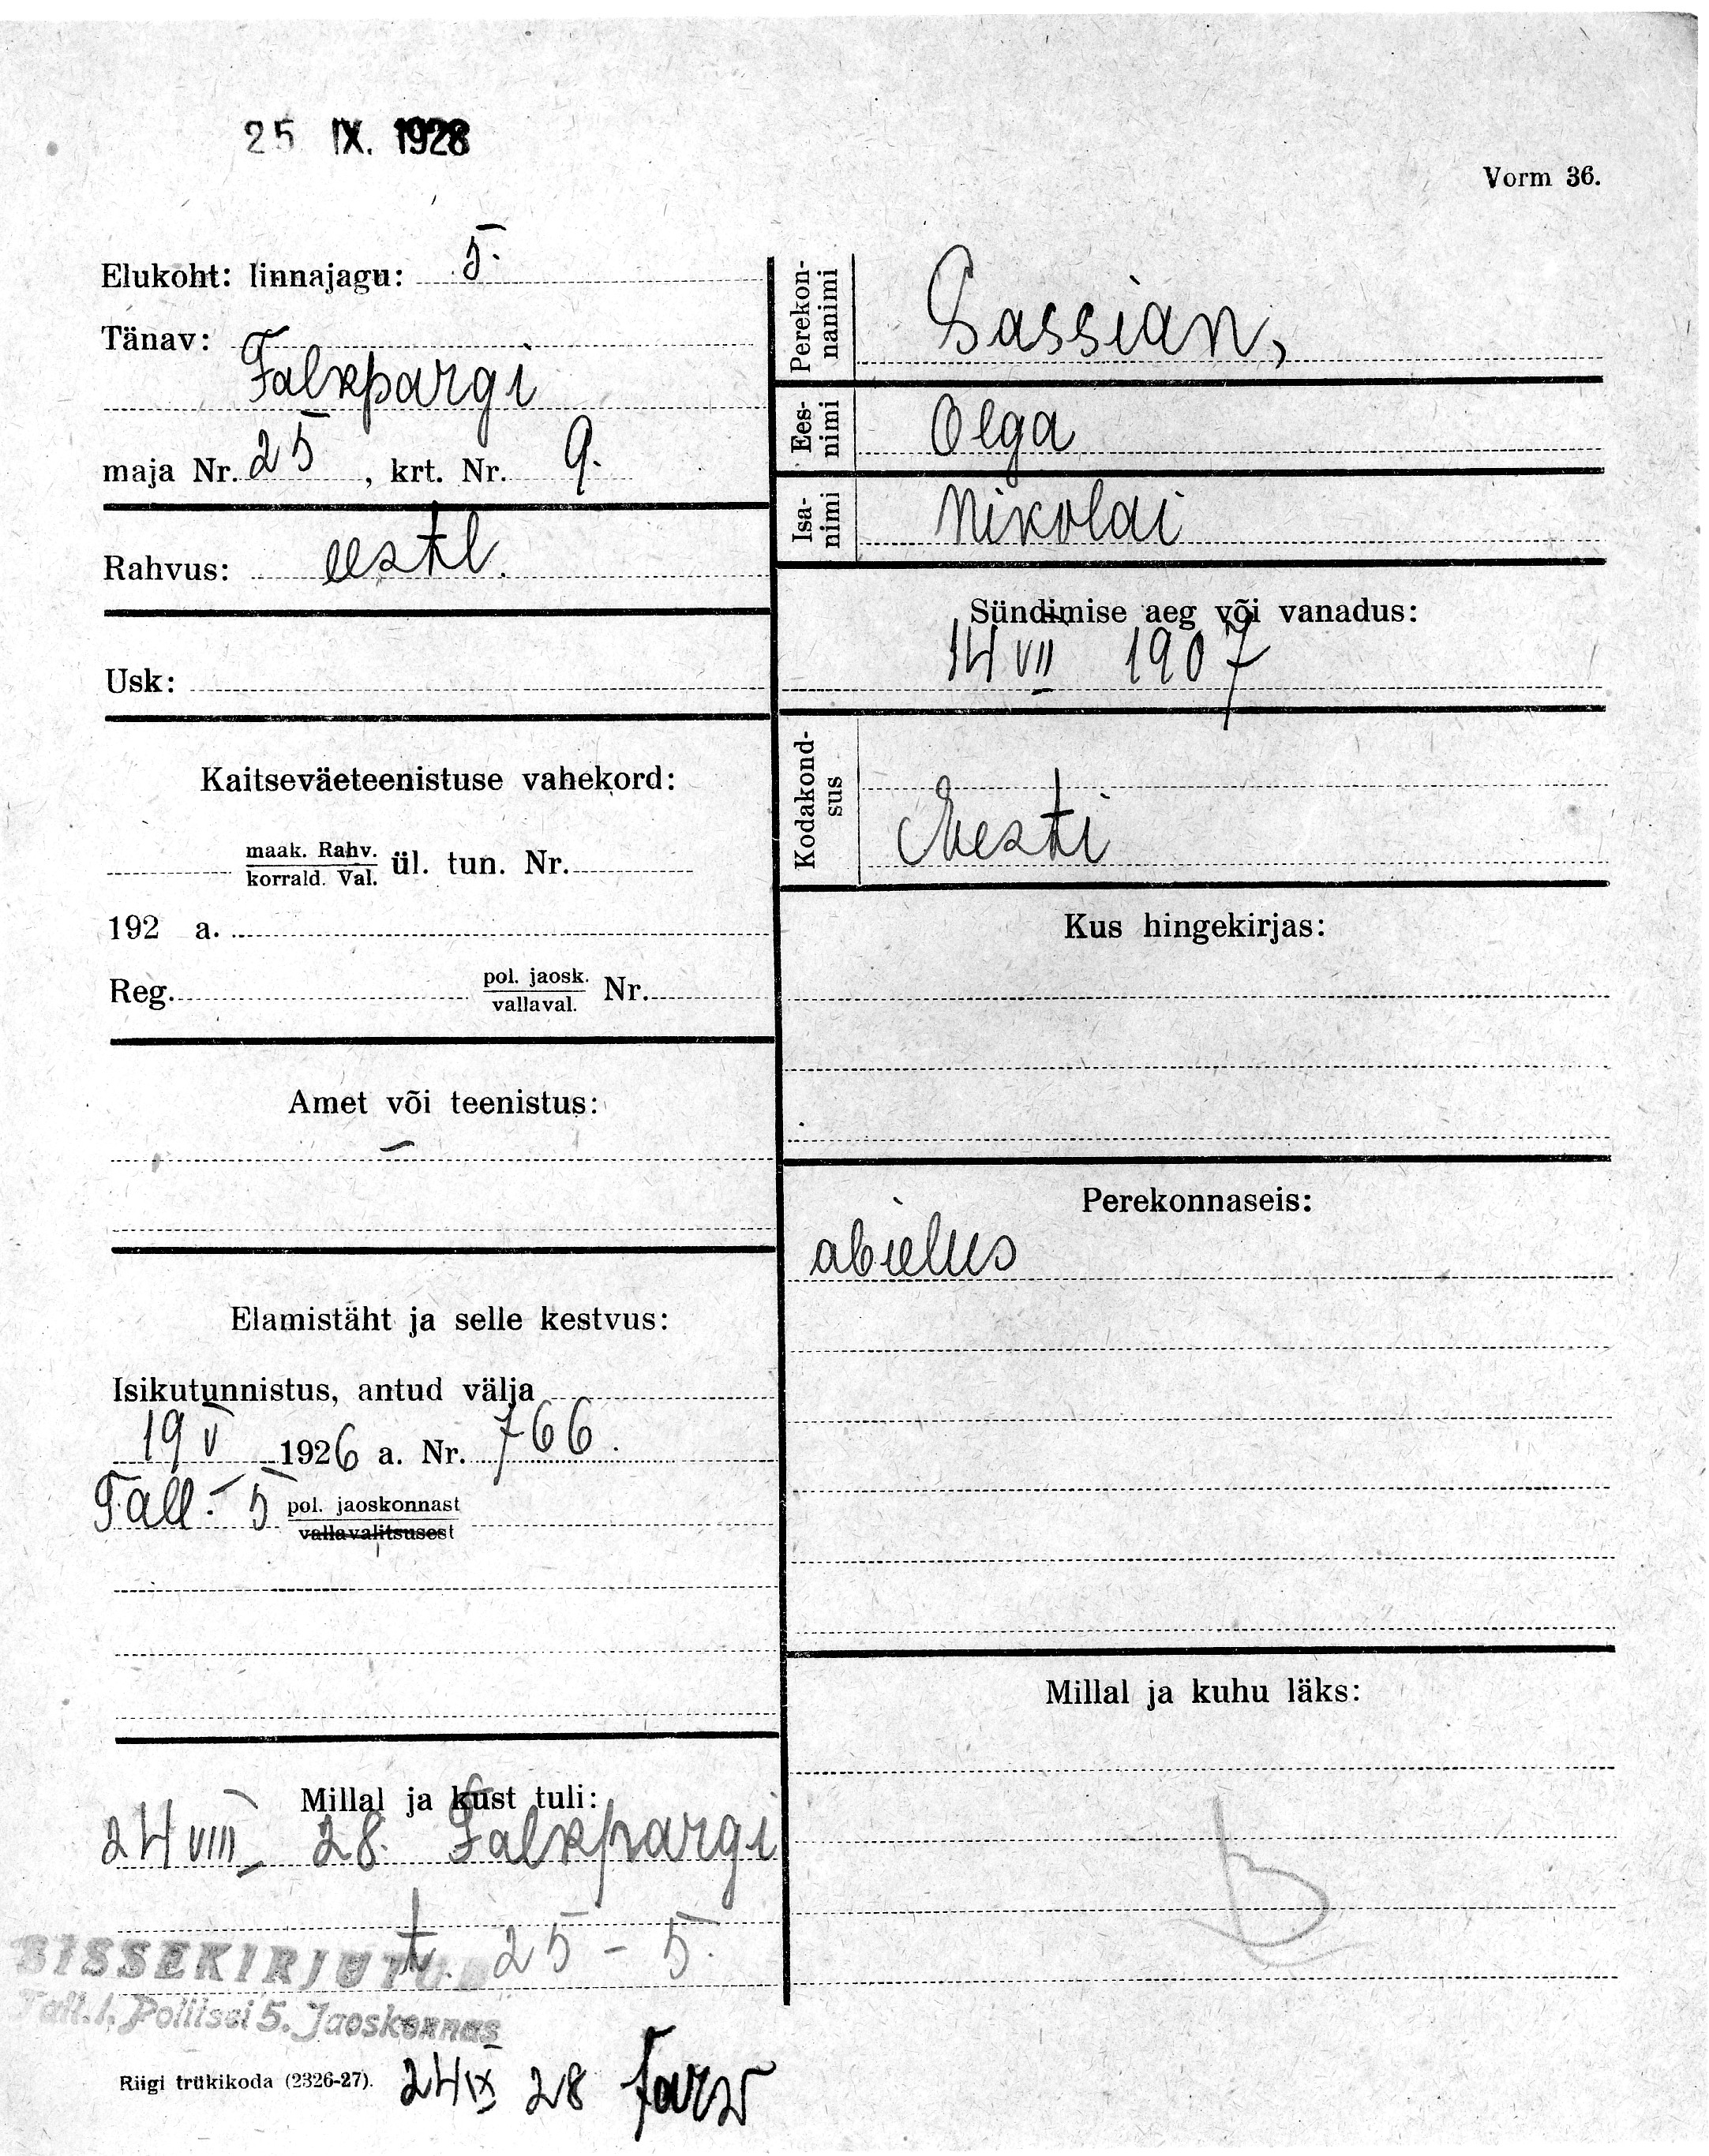 25 IX. 1928
Vorm 36.
Elukoht: linnajagu: 5.
Tänav:
Falkpargi
maja Nr. 25, krt. Nr. 9.
Rahvus: eestl.
Usk:
Kaitseväeteenistuse vahekord:
maak. Rahv.
korrald. Val. ül. tun. Nr.
192 a.
Reg. pol. jaosk.
vallaval. Nr.
Amet või teenistus:
–
Elamistäht ja selle kestvus:
Isikutunnistus, antud välja
19 V 1926 a. Nr. 766.
Tall. 5 pol. jaoskonnast
vallavalitsusest
Millal ja kust tuli:
24 VIII 28. Falkpargi
t. 25 – 5.
SISSEKIRJUTUD
Tall. l. Politsei 5. Jaoskonnas
Riigi trükikoda (2326-27). 24 IX 28
Perekon-
nanimi
Sassian,
Ees-
nimi
Olga
Isa-
nimi
Nikolai
Sündimise aeg või vanadus:
14 VII 1907
Kodakond-
sus
Eesti
Kus hingekirjas:
Perekonnaseis:
abielus
Millal ja kuhu läks: